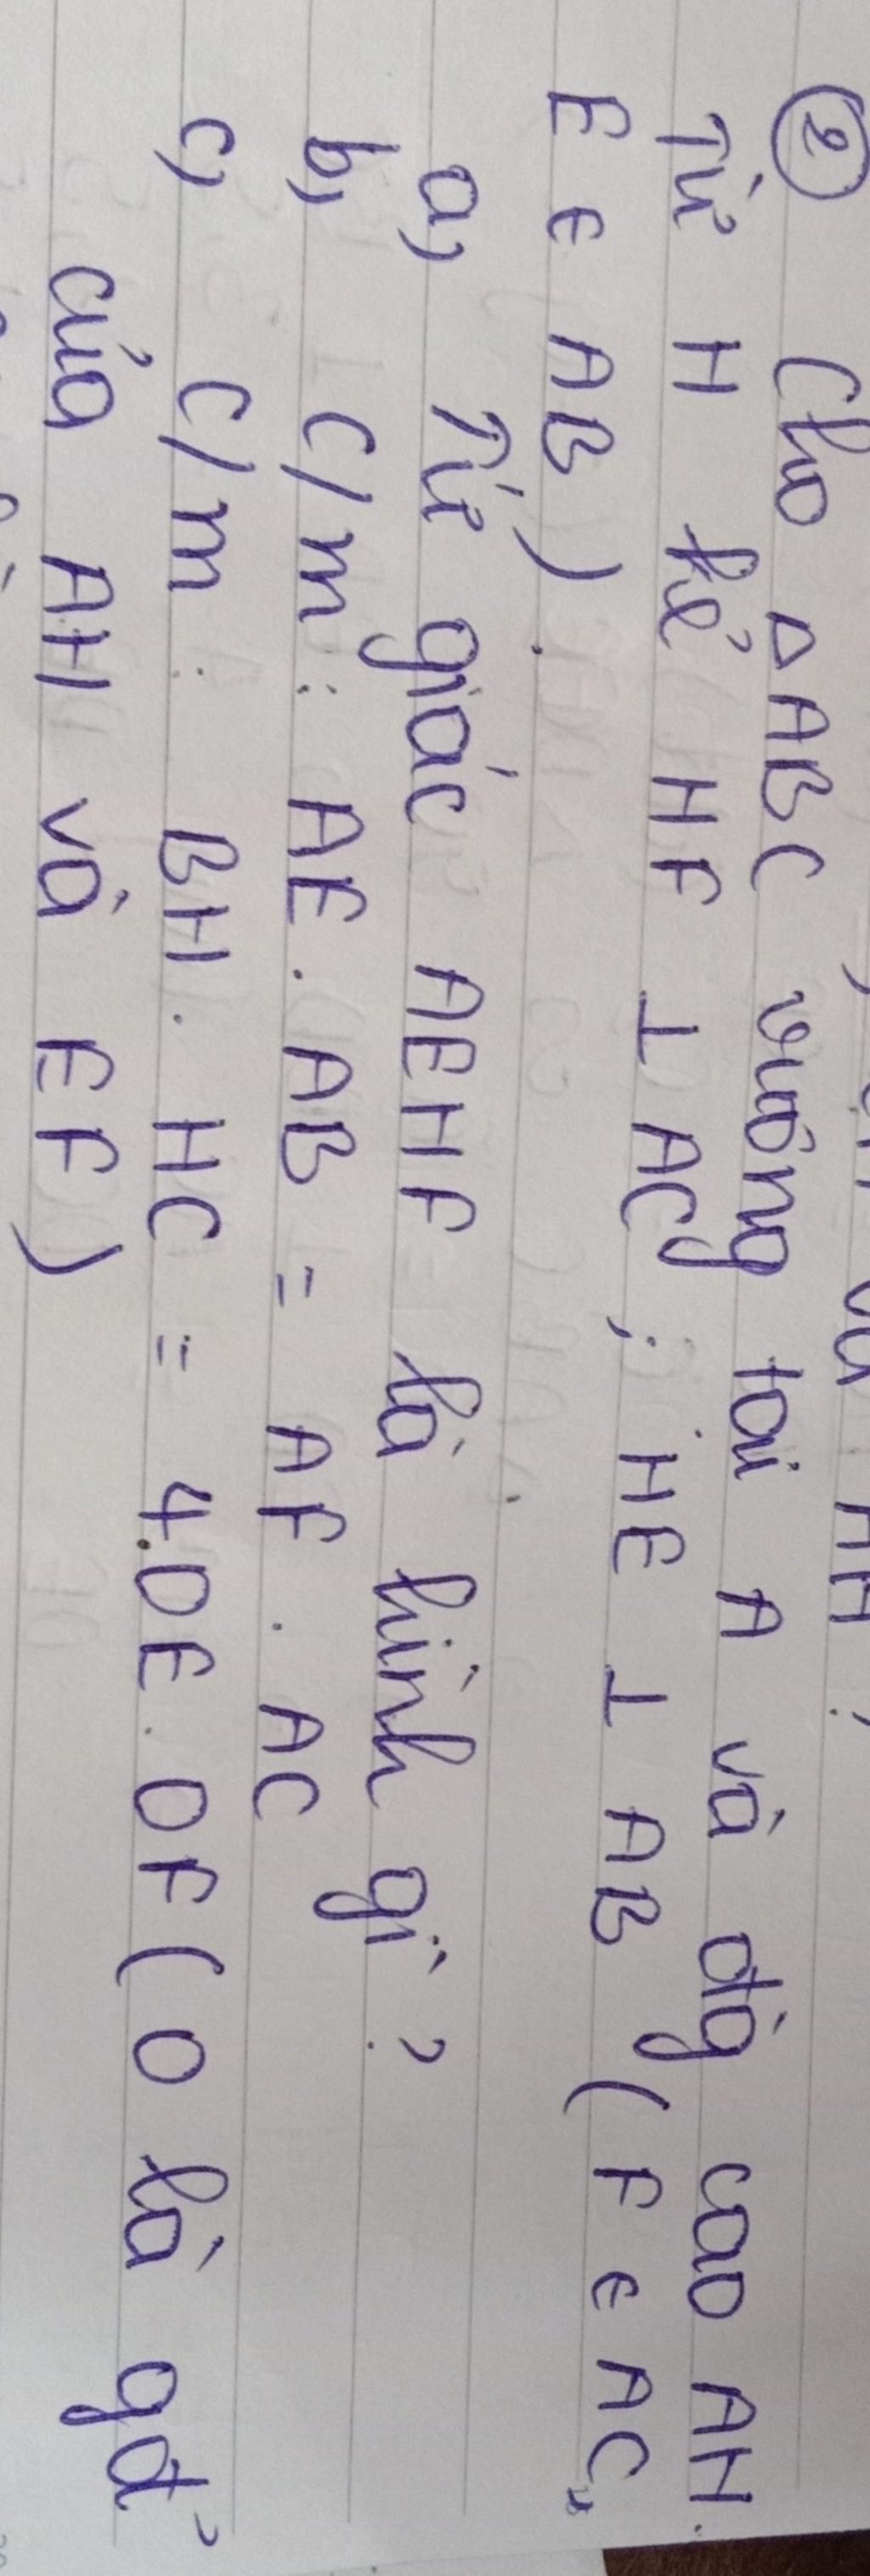 ② Cho ΔABC vuông tại A và đg cao AH.
Từ H kẻ HF ⊥ AC ; HE ⊥ AB (F ∈ AC,
E ∈ AB).
a, Tứ giác AEHF là hình gì ?
b, C/m : AE . AB = AF . AC
c, C/m : BH . HC = 4.OE . OF (O là gđ'
của AH và EF)